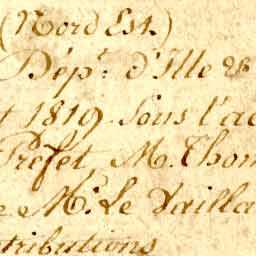 (Nord Est.)
Dép.t d'Ille &
t 1819 Sous l'ad
Préfet M. Thom
e M.r Le Vailla
tributions